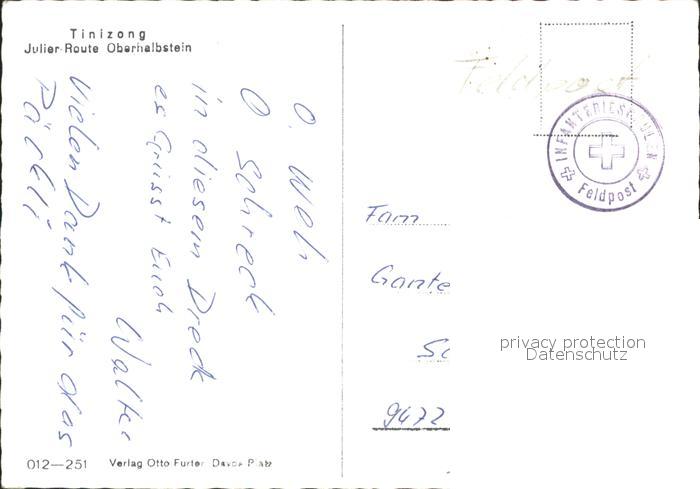 Tinizong
Julier-Route Oberhalbstein
O. Weh
O Schreck
in diesem Dreck
es Grüsst Euch
Walter
Vielen Dank für das
Päckli
012—251 Verlag Otto Furter Davos Platz
Feldpost
INFANTERIESCHULEN
Feldpost
Fam
Gante
Sc
9472
privacy protection
Datenschutz